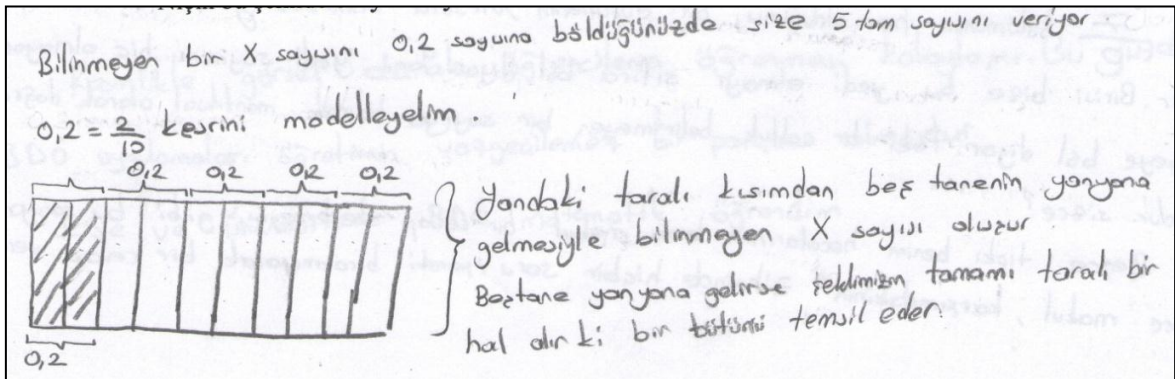 Bilinmeyen bir X sayısını 0,2 sayısına böldüğünüzde size 5 tam sayısını veriyor
0,2 = 2/10 kesrini modelleyelim.
0,2 0,2 0,2 0,2
Yandaki taralı kısımdan beş tanenin yanyana
gelmesiyle bilinmeyen X sayısı oluşur
Beştane yanyana gelirse şeklimizin tamamı taralı bir
hal alır ki bir bütünü temsil eder.
0,2